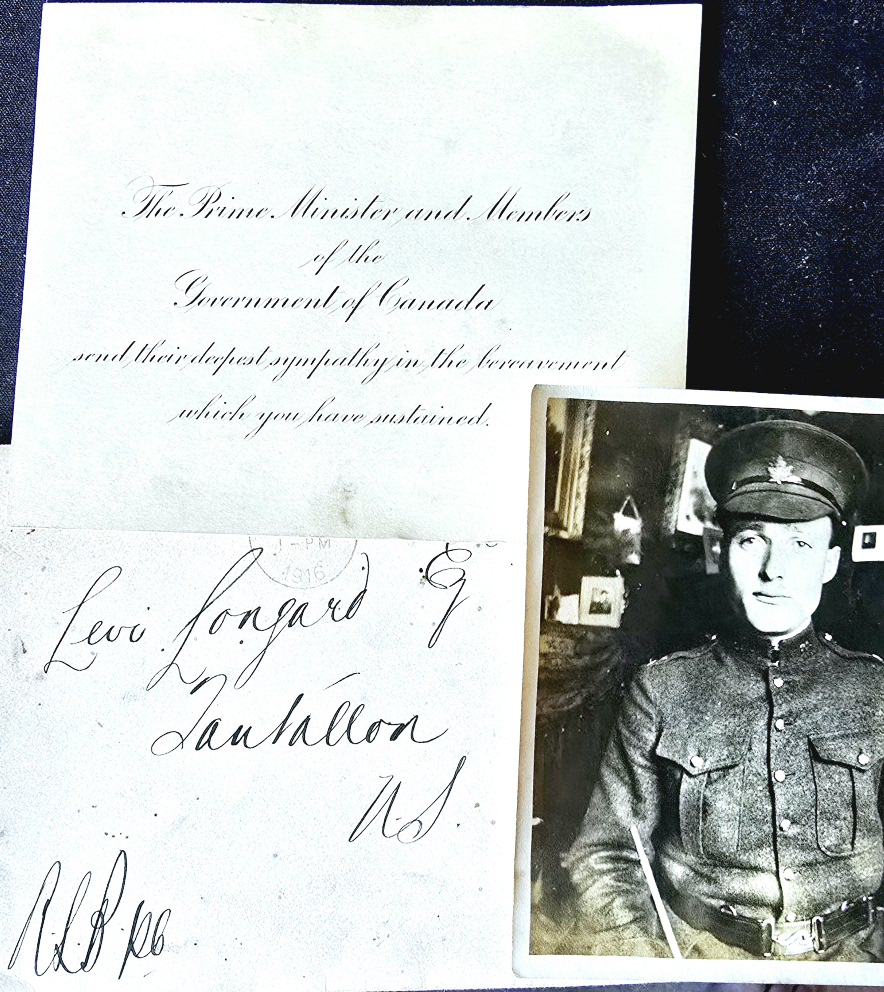 The Prime Minister and Members
of the
Government of Canada
send their deepest sympathy in the bereavement
which you have sustained.
1 - PM
1916
Levi Longard
Tantallon
N.S.
R.L.B.